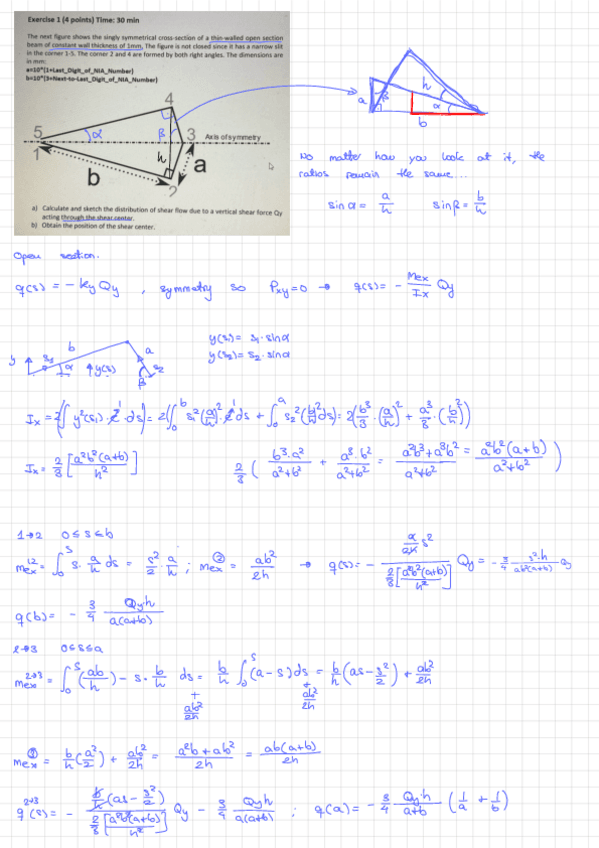 Exercise 1 (4 points) Time: 30 min
The next figure shows the singly symmetrical cross-section of a thin-walled open section
beam of constant wall thickness of 1mm, The figure is not closed since it has a narrow slit
in the corner 1-5. The corner 2 and 4 are formed by both right angles. The dimensions are
in mm:
a=10*(1+Last_Digit_of_NIA_Number)
b=10*(3+Next-to-Last_Digit_of_NIA_Number)
4
5 α β 3 Axis of symmetry
1 h a
b
2
a) Calculate and sketch the distribution of shear flow due to a vertical shear force Qy
acting through the shear center.
b) Obtain the position of the shear center.
a β h α
b
No matter how you look at it, the
ratios remain the same...
sin α = a/h sin β = b/h
Open section.
q(s) = - ky Qy , symmetry so Pxy=0 → q(s) = - Mex/Ix Qy
y s1 b α y(s) a s2 β
y(s1) = s1 · sinα
y(s2) = s2 · sinα
Ix = 2(∫ y²(s1) · e · ds) = 2(∫0^b s1² (a/h)² · e ds + ∫0^a s2² (b/h)² ds) = 2(b³/3 · (a/h)² + a³/3 · (b/h)²)
Ix = 2/3 [a²b²(a+b)/h²] 2/3 ( b³·a²/(a²+b²) + a³·b²/(a²+b²) = (a²b³+a³b²)/(a²+b²) = a²b²(a+b)/(a²+b²) )
1→2 0≤s≤b
mex^12 = ∫0^s s · a/h ds = s²/2 · a/h ; mex^② = ab²/2h → q(s) = - (a/2h s²)/(2/3 [a²b²(a+b)/h²]) Qy = - 3/4 s²·h/(ab²(a+b)) Qy
q(b) = - 3/4 Qyh/(a(a+b))
2→3 0≤s≤a
mex^2→3 = ∫0^s (ab/h) - s · b/h ds + ab²/2h = b/h ∫0^s (a-s) ds + ab²/2h = b/h (as - s²/2) + ab²/2h
mex^③ = b/h (a²/2) + ab²/2h = (a²b + ab²)/2h = ab(a+b)/2h
q^2→3(s) = - (b/h (as - s²/2))/(2/3 [a²b²(a+b)/h²]) Qy - 3/4 Qyh/(a(a+b)) ; q(a) = - 3/4 Qy·h/(a+b) (1/a + 1/b)